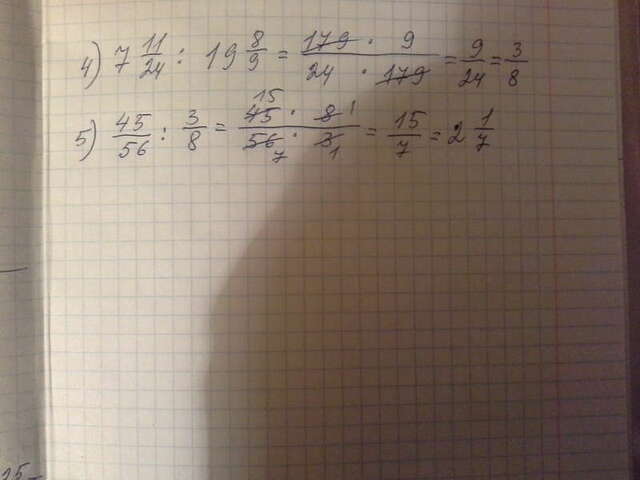 4) 7 11/24 : 19 8/9 = 179 · 9 / 24 · 179 = 9/24 = 3/8
5) 45/56 : 3/8 = 45 15 · 8 1 / 56 7 · 3 1 = 15/7 = 2 1/7